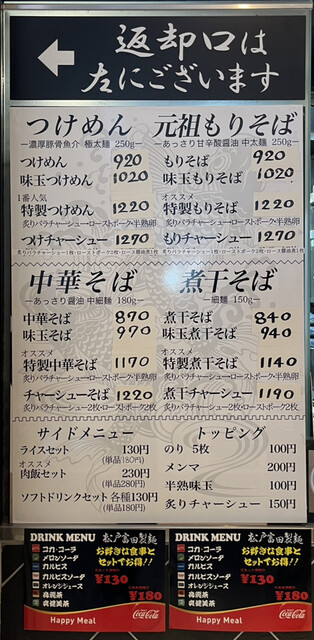 返却口は
左にございます
つけめん
―濃厚豚骨魚介 極太麺 250g―
つけめん 920
味玉つけめん 1020
1番人気
特製つけめん 1220
炙りバラチャーシュー・ローストポーク・半熟卵
つけチャーシュー 1270
元祖もりそば
―あっさり甘辛酸醤油 中太麺 250g―
もりそば 920
味玉もりそば 1020
オススメ
特製もりそば 1220
炙りバラチャーシュー・ローストポーク・半熟卵
もりチャーシュー 1270
中華そば
―あっさり醤油 中細麺 180g―
中華そば 890
味玉そば 970
オススメ
特製中華そば 1170
炙りバラチャーシュー・ローストポーク・半熟卵
チャーシューそば 1220
炙りバラチャーシュー2枚・ローストポーク2枚
煮干そば
―細麺 150g―
煮干そば 840
味玉煮干そば 940
オススメ
特製煮干そば 1140
炙りバラチャーシュー・ローストポーク・半熟卵
煮干チャーシュー 1190
炙りバラチャーシュー2枚・ローストポーク2枚
サイドメニュー
ライスセット 130円
(単品180円)
オススメ
肉飯セット 230円
(単品280円)
ソフトドリンクセット 各種130円
(単品180円)
トッピング
のり 5枚 100円
メンマ 200円
半熟味玉 100円
炙りチャーシュー 150円
DRINK MENU 松戸富田製麺
コカ・コーラ
メロンソーダ
カルピス
カルピスソーダ
オレンジジュース
烏龍茶
爽健美茶
お好きな食事と
セットでお得!!
¥130
¥180
Happy Meal
Coca-Cola
DRINK MENU 松戸富田製麺
コカ・コーラ
メロンソーダ
カルピス
カルピスソーダ
オレンジジュース
烏龍茶
爽健美茶
お好きな食事と
セットでお得!!
¥130
¥180
Happy Meal
Coca-Cola